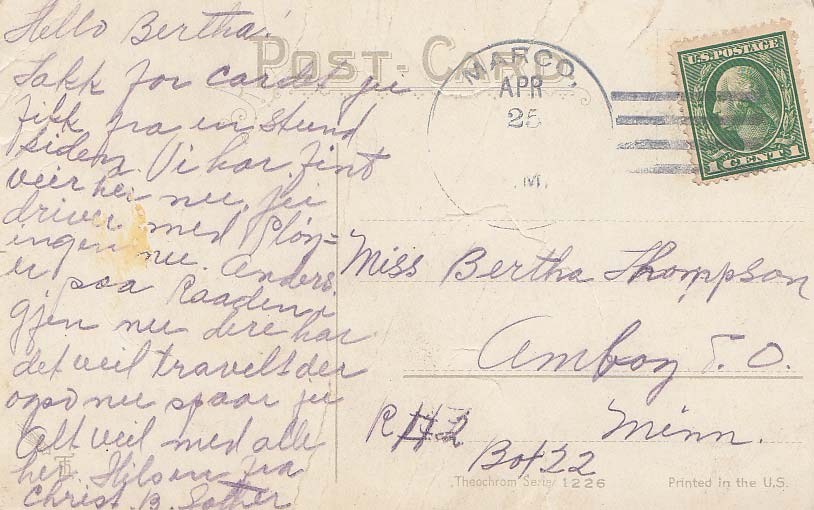 Hello Bertha!
POST-CARD
Takk for cardet jei
fikk fra en stund
siden. Vi har fint
veir her nu. jei
driver med Plöy=
ingen nu. Anders.
er paa Raaden i
gjen nu dere har
det veil travelt der
ogso nu spaar jei
Alt veil med alle
her. Hilsen fra
Christ. B. Sather
MARCO,
APR
25
M.
U.S. POSTAGE
1 CENT 1
Miss Bertha Thompson
Amboy
Minn.
R # 2
Box 22
Theochrom Series 1226
Printed in the U.S.